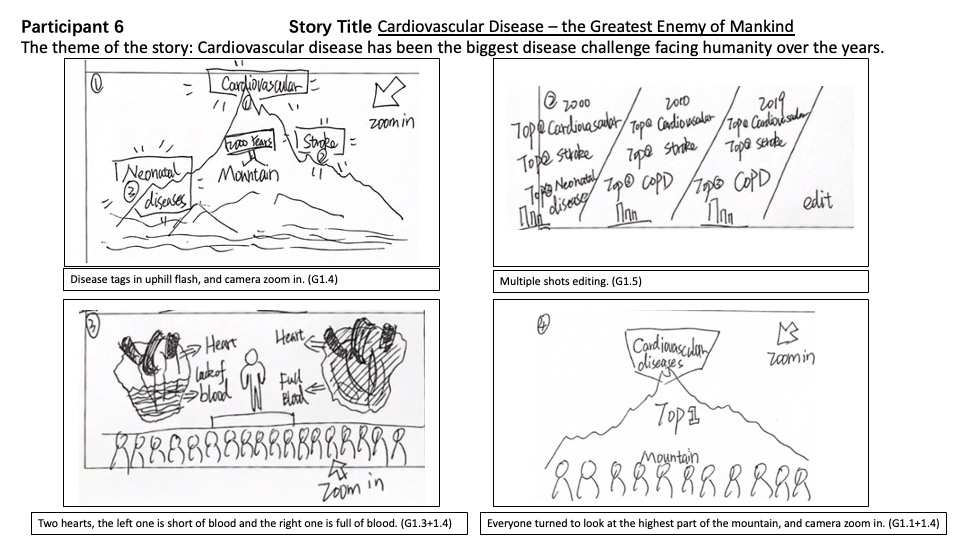 Participant 6
Story Title Cardiovascular Disease – the Greatest Enemy of Mankind
The theme of the story: Cardiovascular disease has been the biggest disease challenge facing humanity over the years.
①
Cardiovascular
①
zoom in
2000 Years
Stroke
②
Mountain
Neonatal
③
diseases
Disease tags in uphill flash, and camera zoom in. (G1.4)
② 2000
Top① Cardiovascular
Top② Stroke
Top③ Neonatal
disease
2010
Top① Cardiovascular
Top② Stroke
Top③ COPD
2019
Top① Cardiovascular
Top② Stroke
Top③ COPD
edit
Multiple shots editing. (G1.5)
③
Heart
lack of
blood
Heart
Full
Blood
Zoom in
Two hearts, the left one is short of blood and the right one is full of blood. (G1.3+1.4)
④
Cardiovascular
diseases
Zoom in
Top 1
Mountain
Everyone turned to look at the highest part of the mountain, and camera zoom in. (G1.1+1.4)